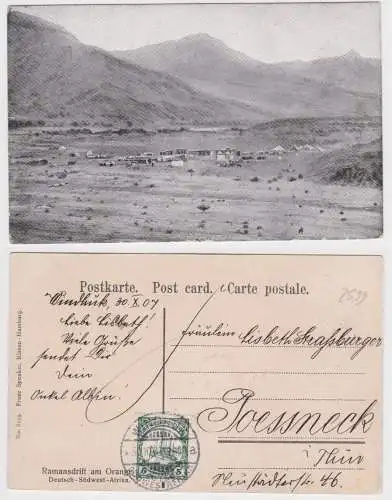 Postkarte. Post card. Carte postale.
Windhuk, 30. X. 07
Liebe Lisbeth!
Viele Grüsse
sendet Dir
Dein
Onkel
Fräulein
Lisbeth Strassburger
Poessneck
i/Thür
Neustädterstr. 46.
2529
Franz Spenker, Hamburg.
Ramansdrift am Oranje
Deutsch-Südwest-Afrika.
5 5